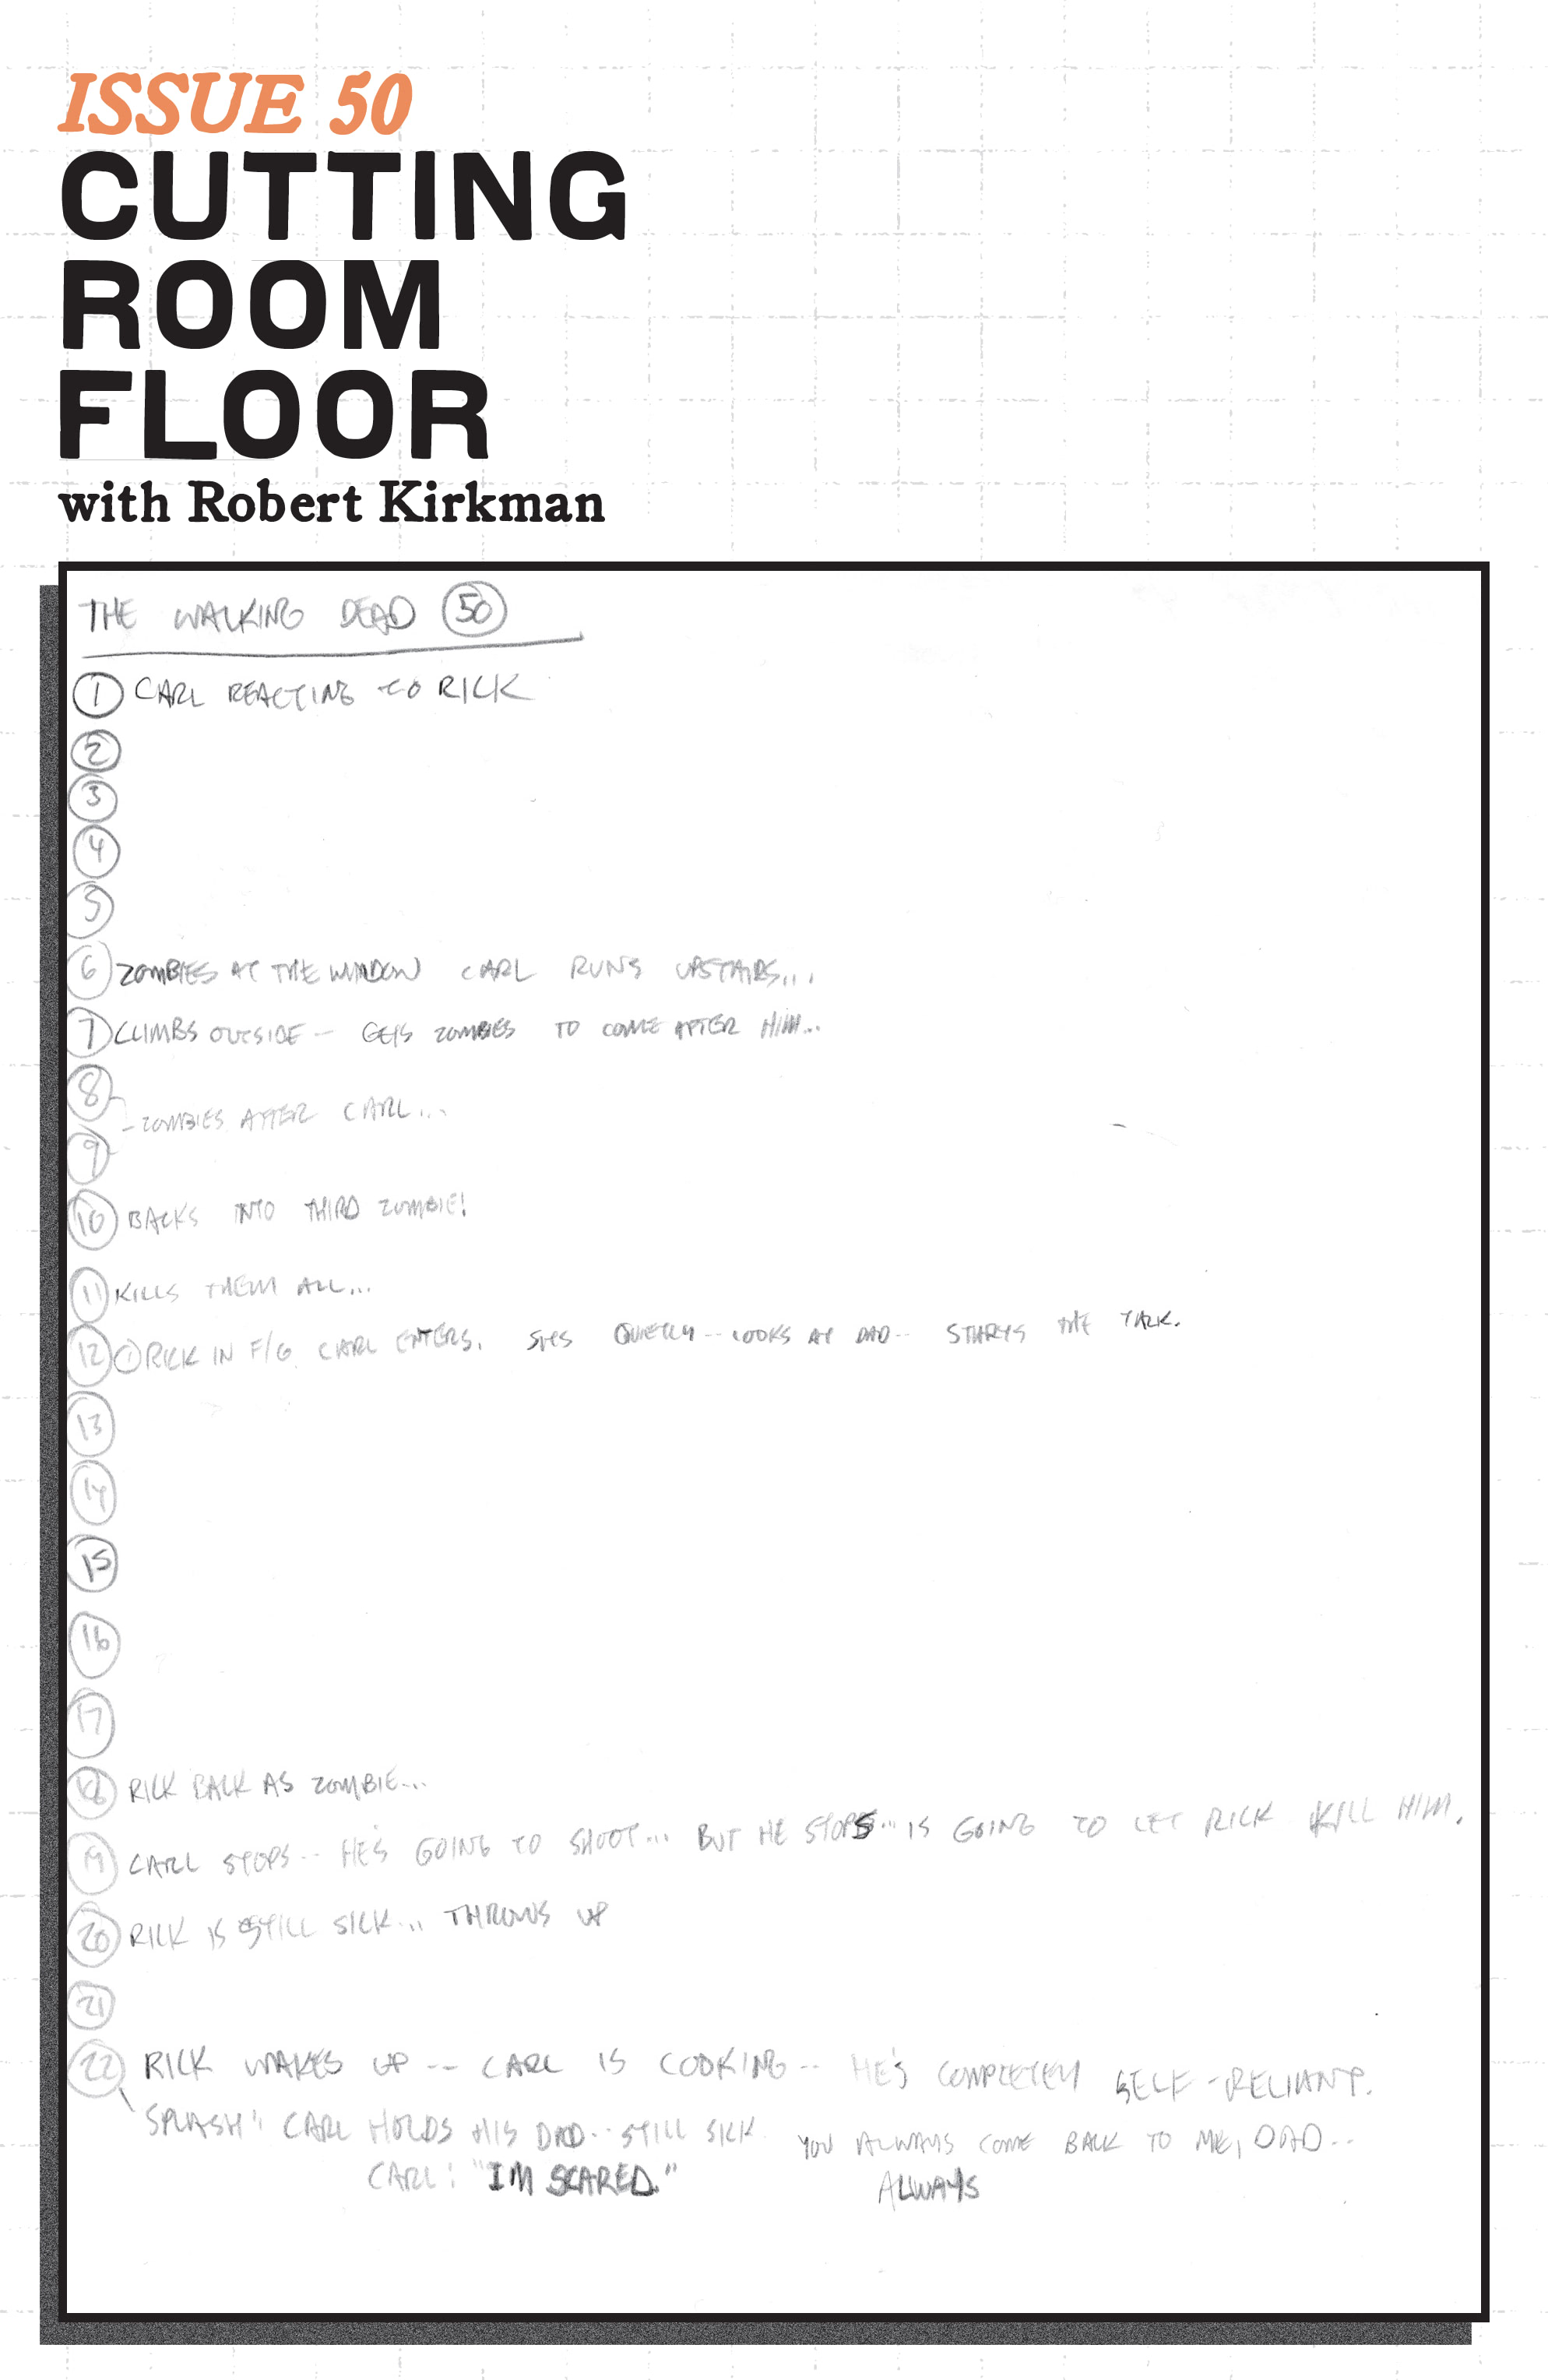 ISSUE 50
CUTTING
ROOM
FLOOR
with Robert Kirkman
THE WALKING DEAD 50
1 CARL REACTING TO RICK
2
3
4
5
6 ZOMBIES AT THE WINDOW CARL RUNS UPSTAIRS...
7 CLIMBS OUTSIDE -- GETS ZOMBIES TO COME AFTER HIM...
8
- ZOMBIES AFTER CARL...
9
10 BACKS INTO THIRD ZOMBIE!
11 KILLS THEM ALL...
12 1 RICK IN F/G CARL ENTERS. SITS QUIETLY -- LOOKS AT DAD -- STARTS THE TALK.
13
14
15
16
17
18 RICK BACK AS ZOMBIE...
19 CARL STOPS -- HE'S GOING TO SHOOT... BUT HE STOPS... IS GOING TO LET RICK KILL HIM.
20 RICK IS STILL SICK... THROWS UP
21
22 RICK WAKES UP -- CARL IS COOKING -- HE'S COMPLETELY SELF-RELIANT.
SPLASH: CARL HOLDS HIS DAD -- STILL SICK. YOU ALWAYS COME BACK TO ME, DAD --
CARL: "I'M SCARED." ALWAYS